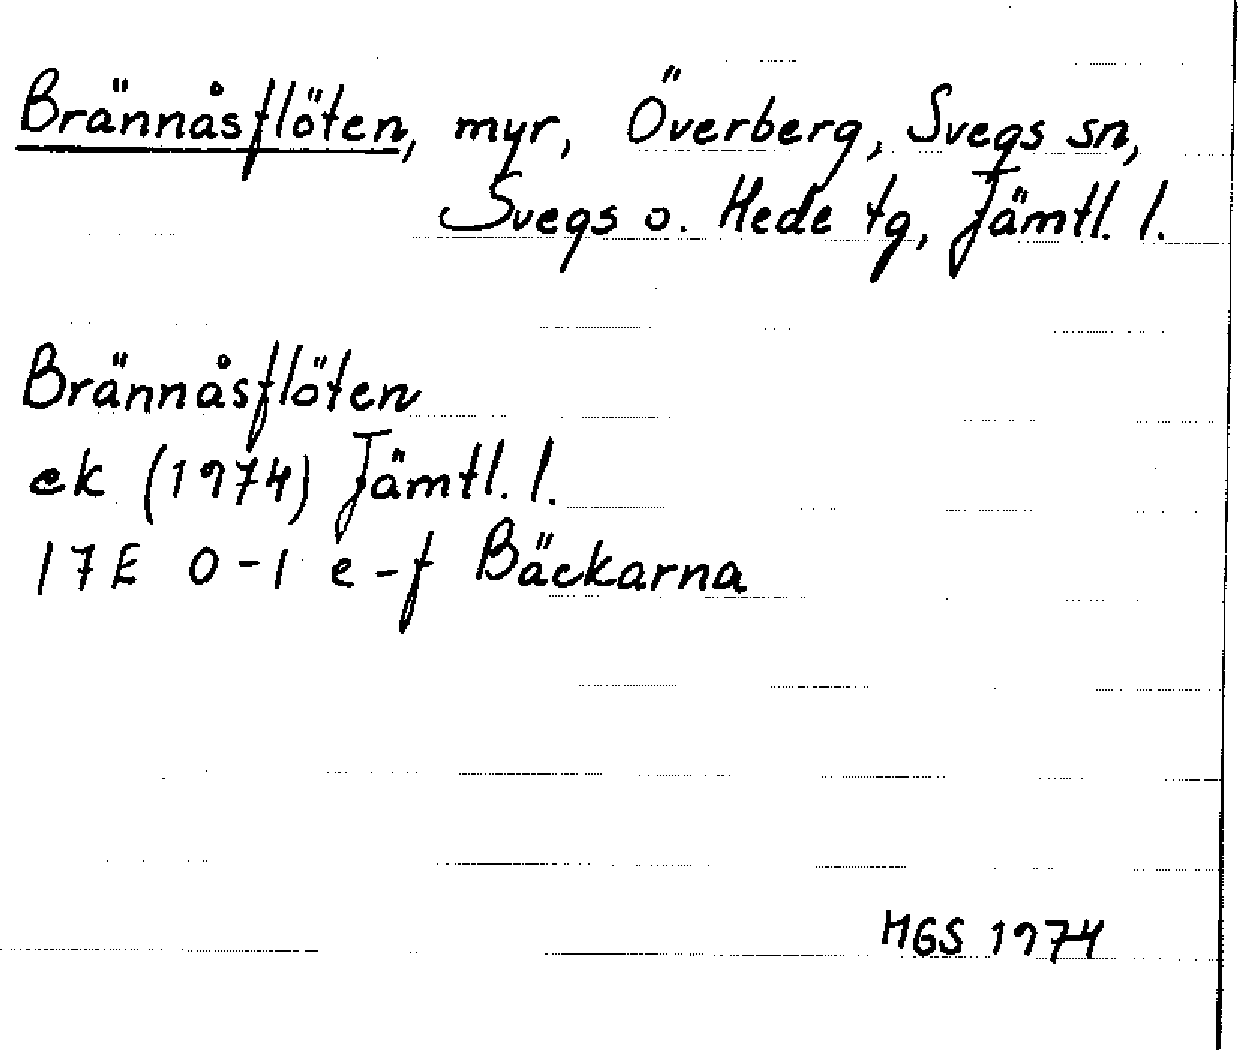 Brännåsflöten, myr, Överberg, Svegs sn,
Svegs o. Hede tg, Jämtl. l.
Brännåsflöten
ek (1974) Jämtl. l.
17E 0-1 e-f Bäckarna
MGS 1974